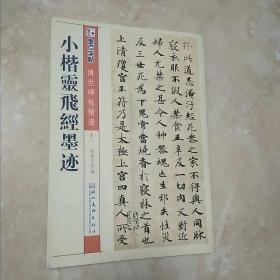 墨点字帖
傳世碑帖精選
小楷靈飛經墨迹
行此道忌淹汙經死喪之家不得與人同牀
寢衣服不假人禁食五辛及一切肉又對近
婦人尤禁之甚令人神喪魂亡生邪失性災
及三世死為下鬼常當燒香於寢牀之首也
上清瓊宮玉符乃是太極上宮四真人所受